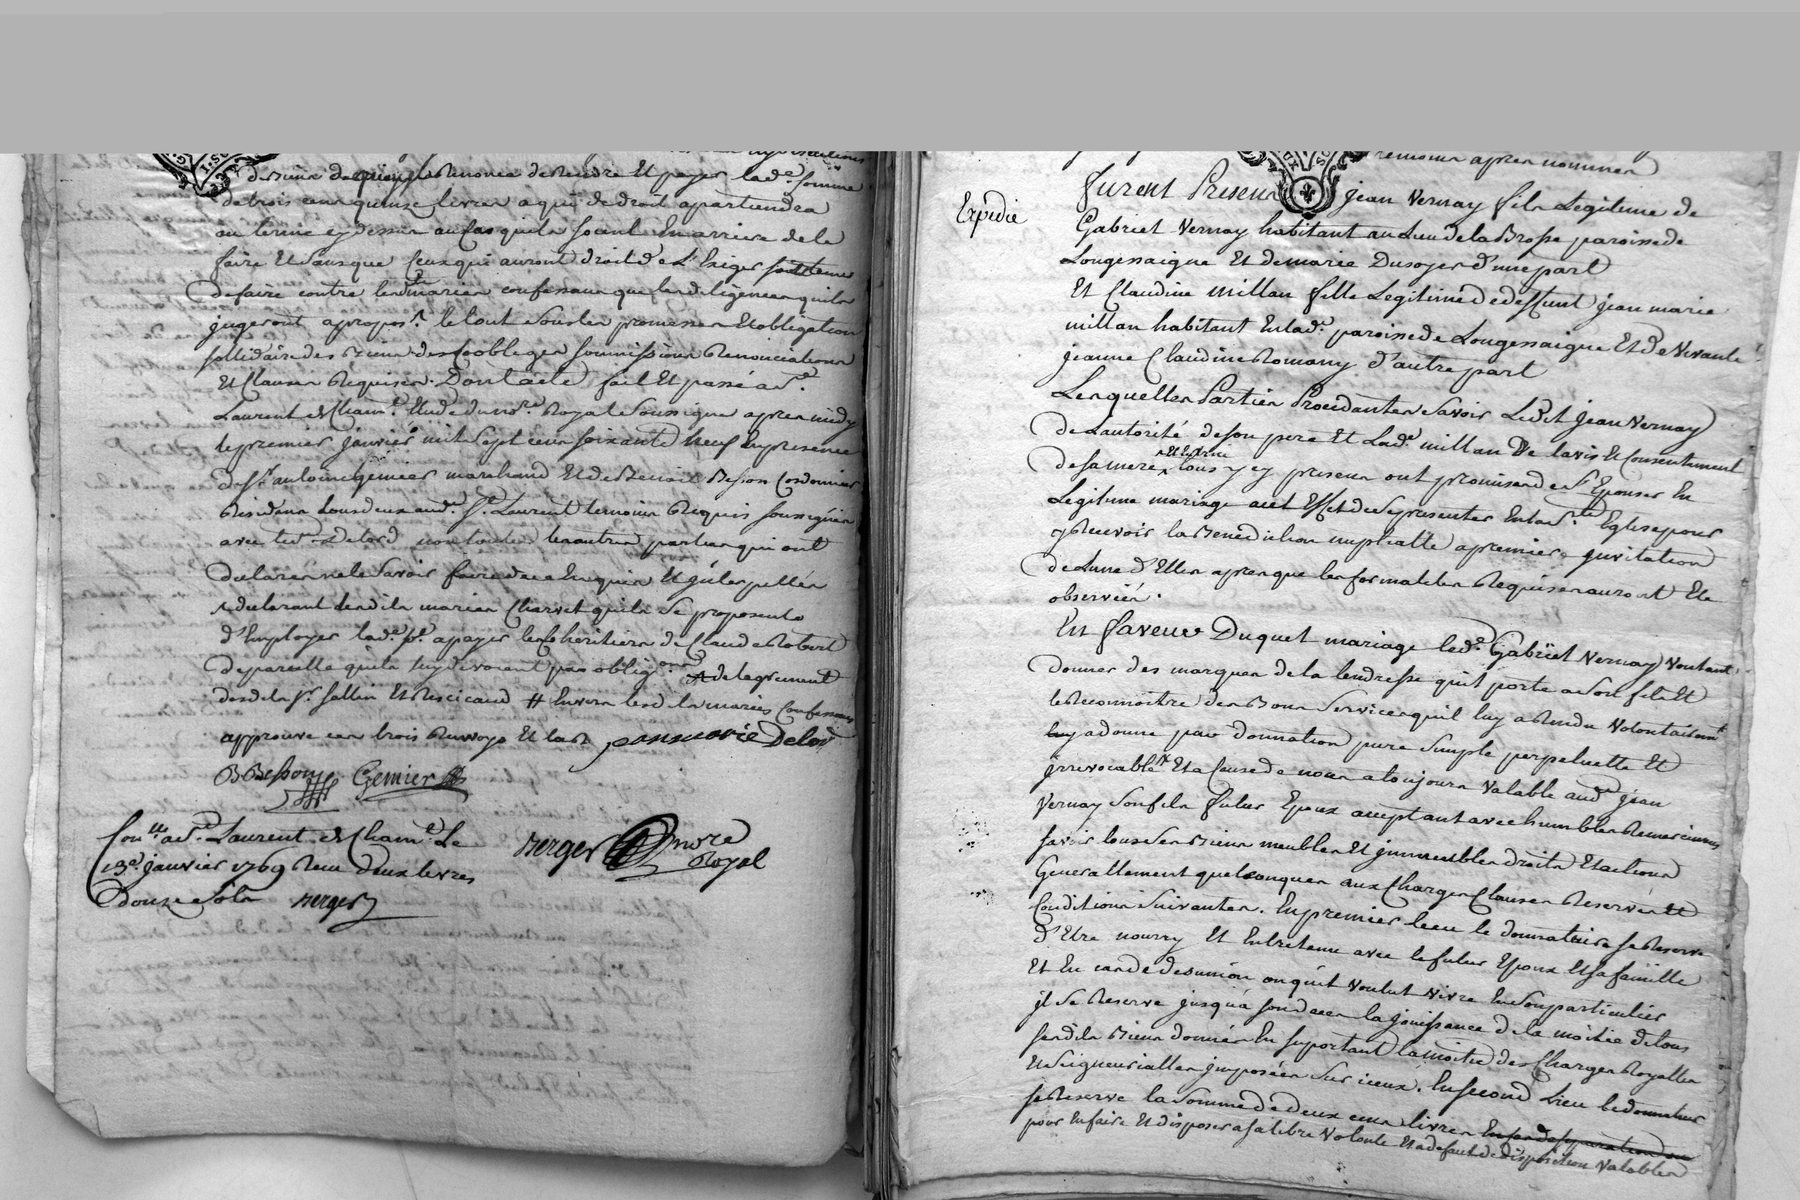 de rendre Et payer lad.e somme
de trois cens quinze livres a qui de droit apartiendra
au terme cy dessus au cas quils soient En arriere de le
faire Et sans que ceux qui auront droit de L'Exiger soit tenus
de faire contre lesd. mariés confessans que les diligences quils
jugeront apropos. le tout sous les promesses Et obligation
sollidaire des Biens des Coobligés soumissions Renonciations
Et Clauses Requises. Dont acte fait Et passé a St.
Laurent de Cham.t Etude du no.re Royal Soussigné apres midy
le premier janvier mil sept cens soixante Neuf En presence
de Sr. antoine gemier marchand Et de Benoit Besson Cordonnier
Residens tous deux aud. St. Laurent temoins Requis soussignés
avec led. Delord non toutes les autres parties qui ont
declaré ne le savoir faire de ce Enquis Et jnterpellés
declarant lesdits mariés Charvet quils se proposent
d'Employer lad.e s.e a payer les Coheritiers de Claude Robert
de pareille quils luy devoient par oblig.on de legrement
desdits Srs. # Envers lesdits mariés Confessans
approuvé ces trois Renvoys Et la
BBesson Gemier
Con.llé a St. Laurent de Cham.t Le
13e janvier 1769 Reçu deux livres
Douze sols Berger
Berger no.re
Royal
temoins apres nommés
Expedié
furent Presens jean Vernay fils Legitime de
Gabriel Vernay habitant au Lieu de la Brosse paroisse de
Longessaigne Et de marie Dusoyer d'une part
Et Claudine millan fille Legitime de deffunt jean marie
millan habitant En lad.e paroisse de Longessaigne Et de Vivante
jeanne Claudine Romany d'autre part
Lesquelles Parties Procedantes savoir Ledit jean Vernay
de Lautorité de son pere Et Lad.e millan De lavis Et Consentement
de sa mere tous cy presens ont promis de s'Epouser En
Legitime mariage a cet Effet de se presenter En la Ste. Eglise pour
y Recevoir la Benediction nuptialle a premiere jnvitation
de Lune d'Elles apres que les formalités Requises auront Eté
observées.
En faveur Duquel mariage led. Gabriel Vernay voulant
donner des marques de la tendresse quil porte a son fils Et
le Reconnoitre des Bons services quil luy a Rendu Volontairem.t
a donné par donnation pure simple perpetuelle Et
jrrevocable Et a Cause de noces a toujours valable aud. jean
Vernay son fils futur Epoux acceptant avec humbles Remerciemens
savoir tous ses Biens meubles Et jmmeubles droits Et actions
Generallement quelconques aux Charges Clauses Reserves Et
Conditions suivantes. En premier lieu le donnateur se Reserve
d'Etre nourry Et Entretenu avec le futur Epoux Et sa famille
Et En cas de desunion ou quil voulut vivre En son particulier
jl se Reserve jusqu'a son deces la jouissance de la moitié de tous
sesdits Biens donnés En suportant la moitié des Charges Royalles
Et Seigneurialles jmposées sur iceux. En second Lieu le donnateur
se Reserve la somme de deux cens livres En cas de separation ou
pour En faire Et disposer a sa libre Volonté Et a defaut de disposition Valables